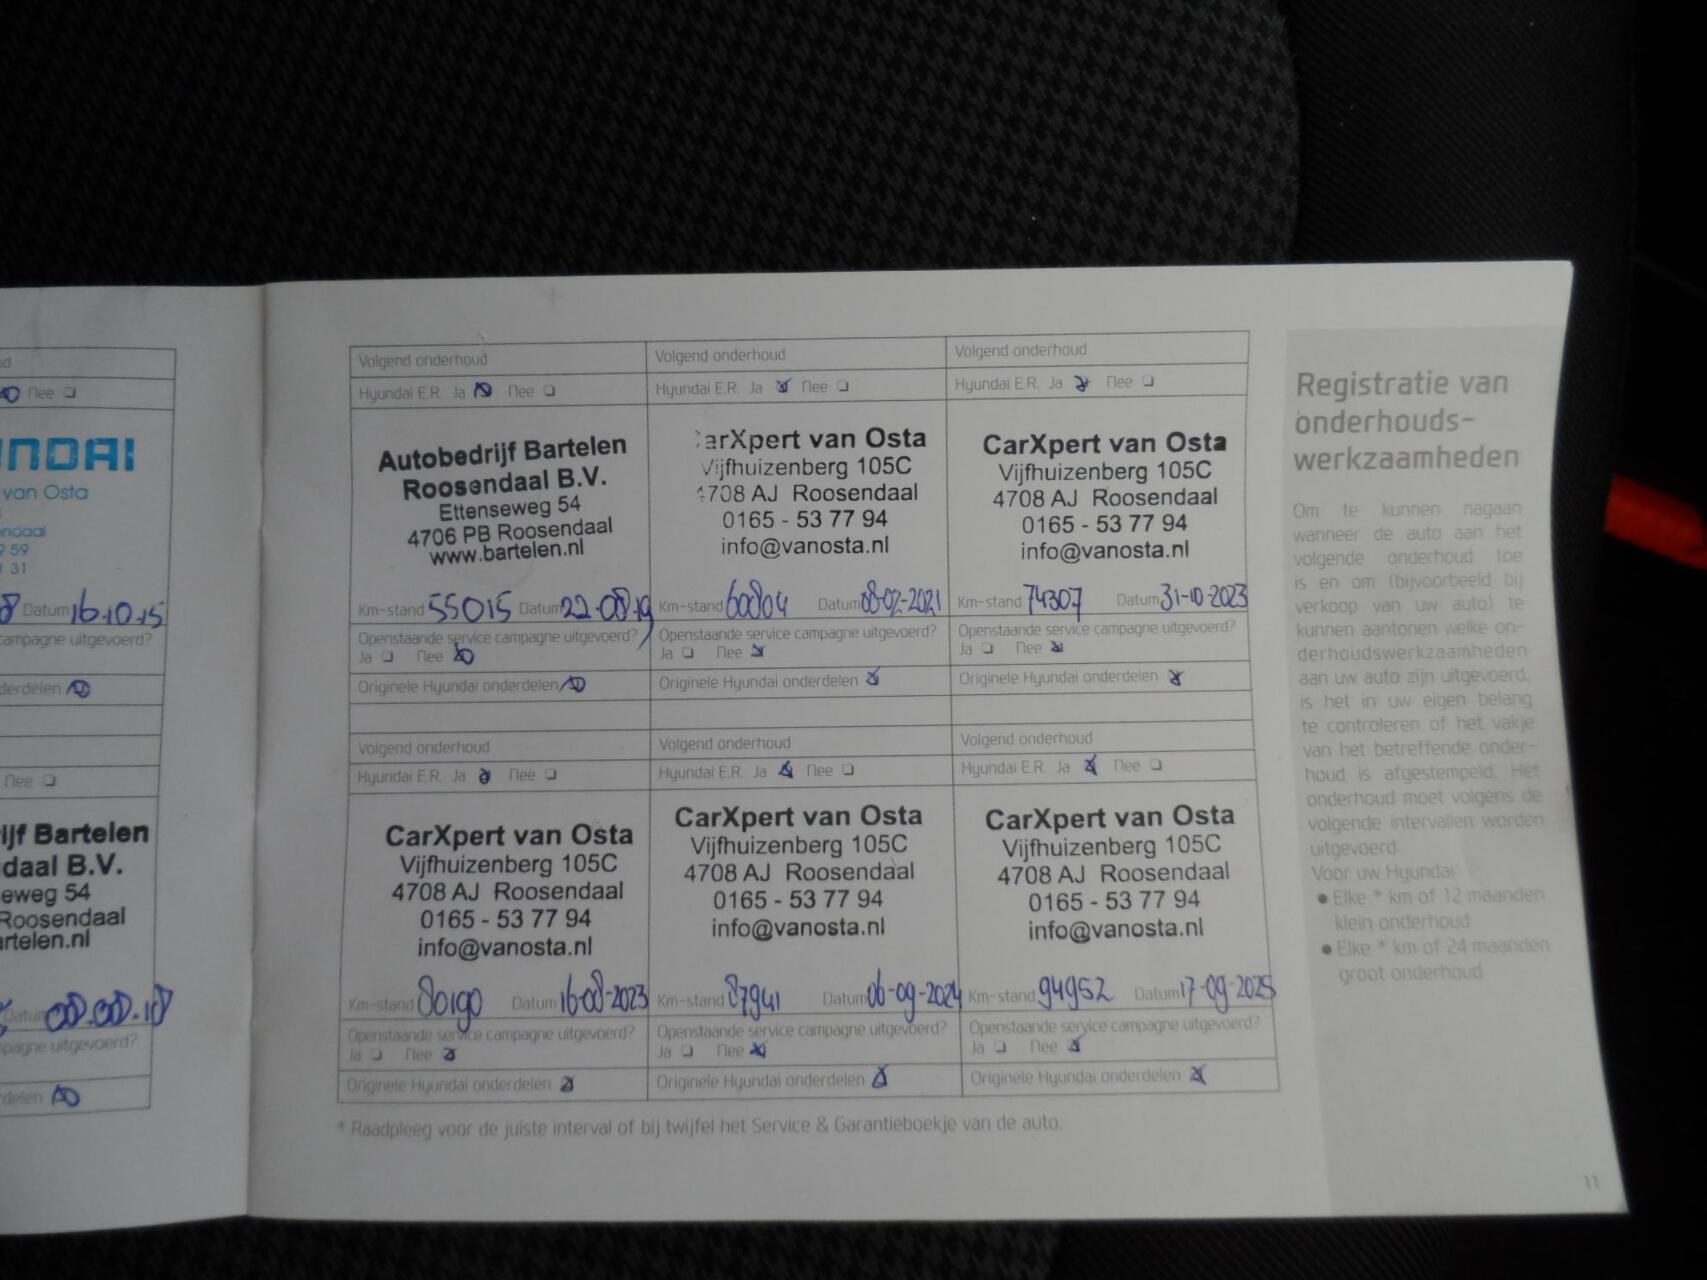 Nee ❑
NDAI
van Osta
ndaal
9 59
1 31
8 Datum 16.10.15
campagne uitgevoerd?
derdelen
Nee ❑
ijf Bartelen
daal B.V.
eweg 54
Roosendaal
artelen.nl
Datum 08.08.18
pagne uitgevoerd?
delen
Volgend onderhoud
Hyundai E.R. Ja Nee ❑
Autobedrijf Bartelen
Roosendaal B.V.
Ettenseweg 54
4706 PB Roosendaal
www.bartelen.nl
Km-stand 55015 Datum 22-08-19
Openstaande service campagne uitgevoerd?
Ja ❑ Nee
Originele Hyundai onderdelen
Volgend onderhoud
Hyundai E.R. Ja Nee ❑
arXpert van Osta
Vijfhuizenberg 105C
4708 AJ Roosendaal
0165 - 53 77 94
info@vanosta.nl
Km-stand 60804 Datum 08-02-2021
Openstaande service campagne uitgevoerd?
Ja ❑ Nee
Originele Hyundai onderdelen
Volgend onderhoud
Hyundai E.R. Ja Nee ❑
CarXpert van Osta
Vijfhuizenberg 105C
4708 AJ Roosendaal
0165 - 53 77 94
info@vanosta.nl
Km-stand 74307 Datum 31-10-2023
Openstaande service campagne uitgevoerd?
Ja ❑ Nee
Originele Hyundai onderdelen
Volgend onderhoud
Hyundai E.R. Ja Nee ❑
CarXpert van Osta
Vijfhuizenberg 105C
4708 AJ Roosendaal
0165 - 53 77 94
info@vanosta.nl
Km-stand 80190 Datum 16-08-2023
Openstaande service campagne uitgevoerd?
Ja ❑ Nee
Originele Hyundai onderdelen
Volgend onderhoud
Hyundai E.R. Ja Nee ❑
CarXpert van Osta
Vijfhuizenberg 105C
4708 AJ Roosendaal
0165 - 53 77 94
info@vanosta.nl
Km-stand 87941 Datum 06-09-2024
Openstaande service campagne uitgevoerd?
Ja ❑ Nee
Originele Hyundai onderdelen
Volgend onderhoud
Hyundai E.R. Ja Nee ❑
CarXpert van Osta
Vijfhuizenberg 105C
4708 AJ Roosendaal
0165 - 53 77 94
info@vanosta.nl
Km-stand 94952 Datum 17-09-2025
Openstaande service campagne uitgevoerd?
Ja ❑ Nee
Originele Hyundai onderdelen
* Raadpleeg voor de juiste interval of bij twijfel het Service & Garantieboekje van de auto.
Registratie van
onderhouds-
werkzaamheden
Om te kunnen nagaan
wanneer de auto aan het
volgende onderhoud toe
is en om (bijvoorbeeld bij
verkoop van uw auto) te
kunnen aantonen welke on-
derhoudswerkzaamheden
aan uw auto zijn uitgevoerd,
is het in uw eigen belang
te controleren of het vakje
van het betreffende onder-
houd is afgestempeld. Het
onderhoud moet volgens de
volgende intervallen worden
uitgevoerd.
Voor uw Hyundai:
● Elke * km of 12 maanden
klein onderhoud
● Elke * km of 24 maanden
groot onderhoud
11